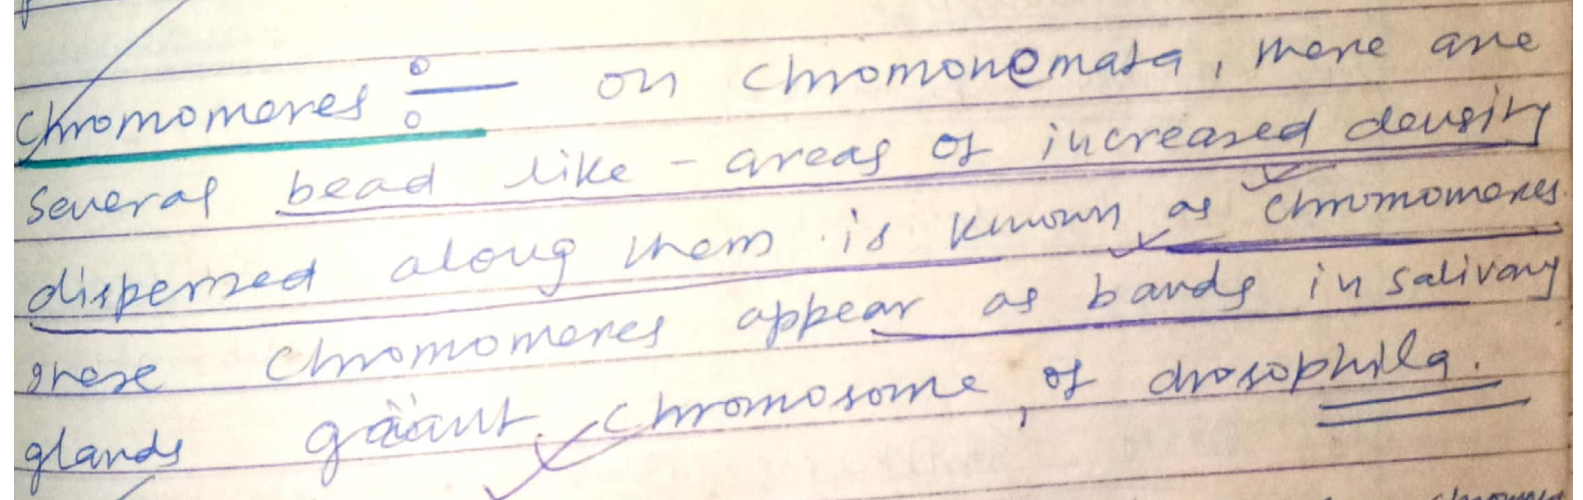 Chromomeres :- on chromonemata, there are
several bead like - areas of increased density
dispersed along them is known as chromomeres.
These chromomeres appear as bands in salivary
glands giant chromosome, of drosophila.